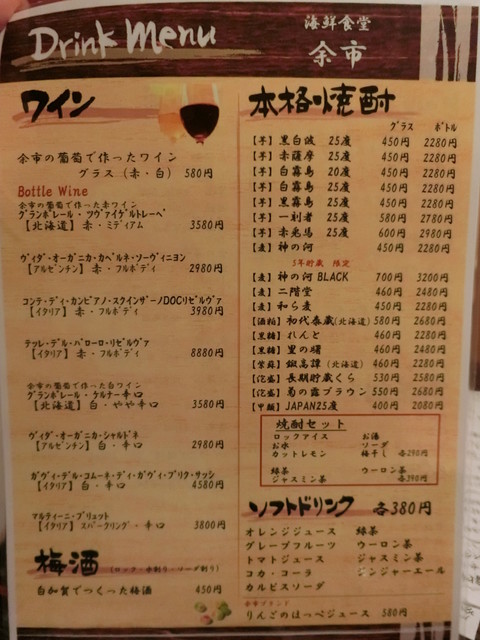 Drink Menu
海鮮食堂
余市
ワイン
余市の葡萄で作ったワイン
グラス（赤・白） 580円
Bottle Wine
余市の葡萄で作った赤ワイン
グランポレール・ツヴァイゲルトレーベ
【北海道】赤・ミディアム 3580円
ヴィダ・オーガニカ・カベルネ・ソーヴィニヨン
【アルゼンチン】赤・フルボディ 2980円
コンテ・ディ・カンピアノ・スクインザーノDOCリゼルヴァ
【イタリア】赤・フルボディ 3980円
テッレ・デル・バローロ・リゼルヴァ
【イタリア】赤・フルボディ 8880円
余市の葡萄で作った白ワイン
グランポレール・ケルナー辛口
【北海道】白・やや辛口 3580円
ヴィダ・オーガニカ・シャルドネ
【アルゼンチン】白・辛口 2980円
ガヴィ・デル・コムーネ・ディ・ガヴィ・ブリク・サッシ
【イタリア】白・辛口 4580円
マルティーニ・ブリュット
【イタリア】スパークリング・辛口 3800円
梅酒（ロック・水割り・ソーダ割り）
白加賀でつくった梅酒 450円
本格焼酎
グラス ボトル
【芋】黒白波 25度 450円 2280円
【芋】赤薩摩 25度 450円 2280円
【芋】白霧島 20度 450円 2280円
【芋】白霧島 25度 450円 2280円
【芋】黒霧島 25度 450円 2280円
【芋】一刻者 25度 580円 2780円
【芋】赤兎馬 25度 600円 2980円
【麦】神の河 450円 2280円
5年貯蔵 限定
【麦】神の河 BLACK 700円 3200円
【麦】二階堂 460円 2480円
【麦】和ら麦 450円 2280円
【酒粕】初代泰蔵(北海道) 580円 2680円
【黒糖】れんと 460円 2280円
【黒糖】里の曙 460円 2480円
【紫蘇】鍛高譚(北海道) 460円 2280円
【泡盛】長期貯蔵くら 530円 2580円
【泡盛】菊の露ブラウン 550円 2680円
【甲類】JAPAN25度 400円 2080円
焼酎セット
ロックアイス お湯
お水 ソーダ
カットレモン 梅干し 各290円
緑茶 ウーロン茶
ジャスミン茶 各390円
ソフトドリンク 各380円
オレンジジュース 緑茶
グレープフルーツ ウーロン茶
トマトジュース ジャスミン茶
コカ・コーラ ジンジャーエール
カルピスソーダ
余市ブランド
りんごのほっぺジュース 580円